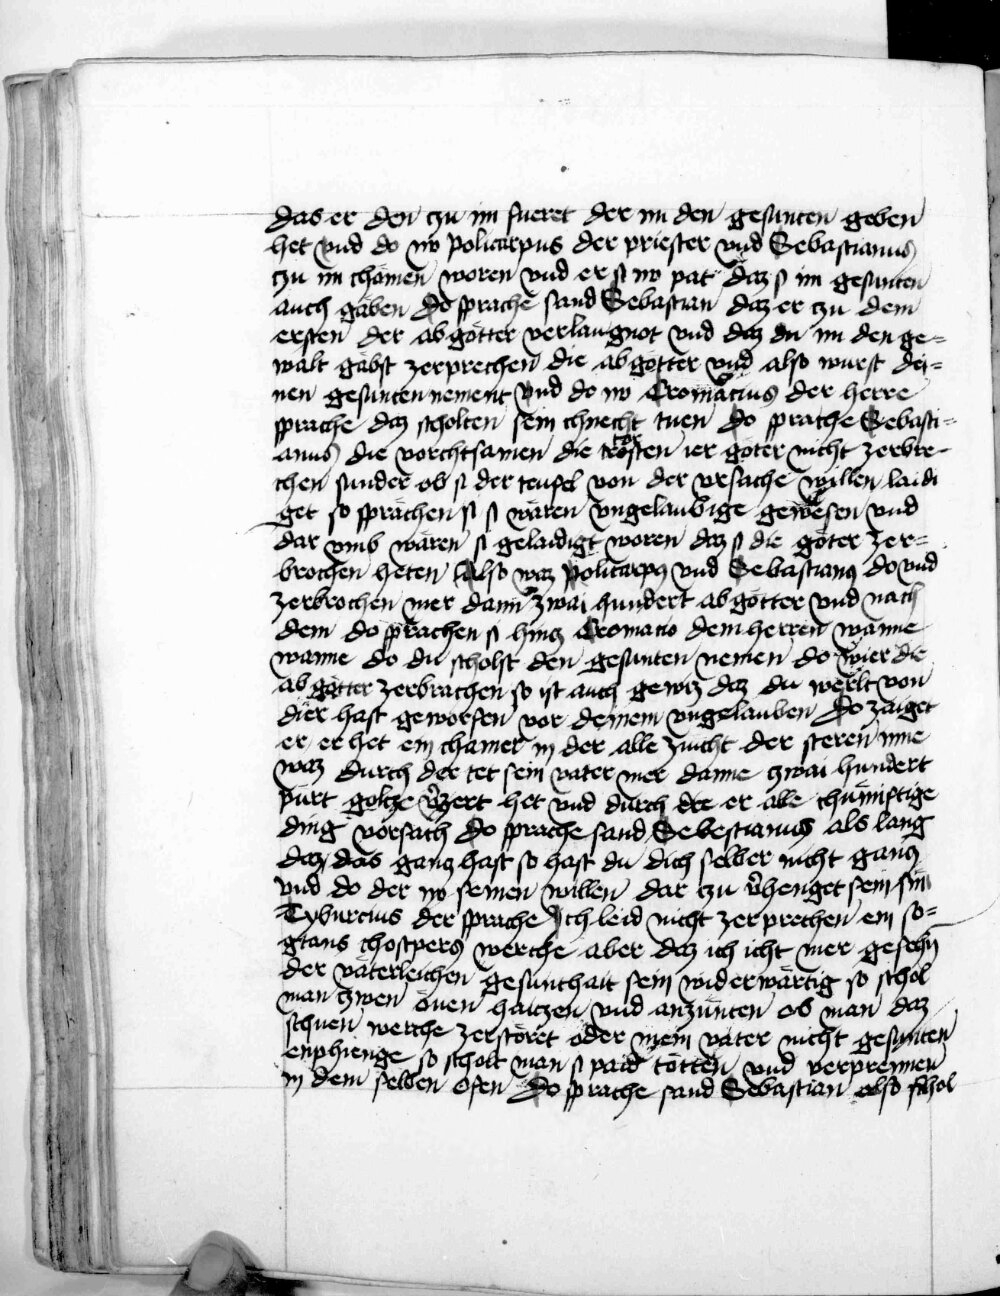 das er den czu im fueret der im den gesunten geben
het vnd do no policarpus der priester vnd Sebastianus
czu im chömen woren vnd er si no pat daz s im gesunten
auch gäben Do sprache sand Sebastian daz er czu dem
ersten der abgötter verlaugnot vnd daz du im den ge=
walt gäbst zerprechen die abgötter vnd also wurst dei=
nen gesunten nement vnd do no Cromacius der herre
sprache daz scholten sein chnecht tuen Do sprache Sebasti=
anus die vorchtsamen die törosten ier göter nicht zerbre-
chen sunder ob si der teufel von der vrsache willen laidi
get so sprächen si s wären vngelaubige gewesen vnd
dar vmb wären si gelaidigt woren daz s die göter zer=
brochen heten Also waz policarpus vnd Sebastianus do vnd
zerbrochen mer dann zwai hundert abgötter vnd nach
dem do sprächen si hincz Cromacio dem herren wanne
wanne do du scholst den gesunten nemen do wier die
abgötter zerbrachen so ist auch gewiz daz du werlt von
dier hast geworfen vor deinem vngelauben Do zaiget
er er het ein chamer in der alle zuicht der steren inne
waz durch der tet sein vater mer danne czwai hundert
purt golcze verzert het vnd durch dee er alle chümftige
ding vorsach Do sprache sand Sebestianus als lang
daz das gancz hast so hast du dich selber nicht gancz
vnd do der no seinen willen dar czu verhenget sein sün
Tyburcius der sprache Ich leid nicht zerprechen ein so=
gtans chostpers werche aber daz ich icht mer gesehn
der väterleichen gesunthait sein widerwärtig so schol
man czwen öuen haiczen vnd anzünten ob man daz
schuen werche zerstöret oder mein vater nicht gesunten
enphienge so scholt man s paid tötten vnd verprennen
in dem selben ofen Do sprache sand Sebastian also schol